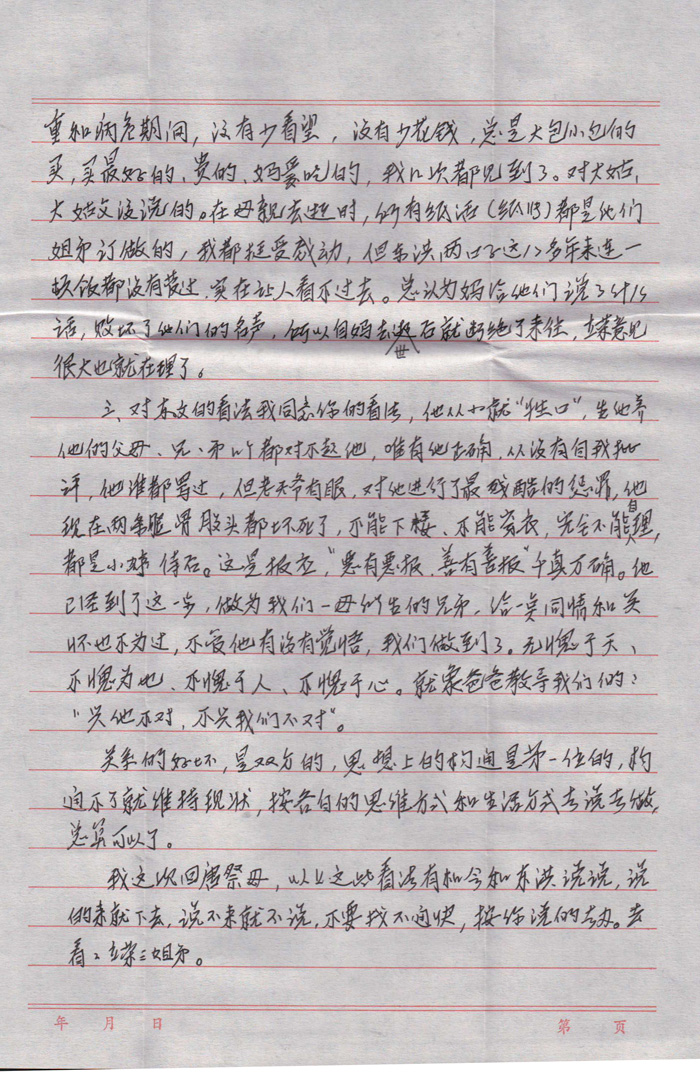 重和病危期间，没有少看望，没有少花钱，总是大包小包的
买，买最好的、贵的、妈爱吃的，我几次都见到了。对大姑、
大姑父没说的。在母亲去逝时，所有纸活（纸吗）都是他们
姐弟订做的，我都挺受感动，但东洪两口子这1多年来连一
顿饭都没有营过，实在让人看不过去。总认为妈给他们说了什么
话，败坏了他们的名声，所以自妈去世后就断绝了来往，立荣意见
很大也就在理了。
三、对东文的看法我同意你的看法，他从小就“牲口”，生他养
他的父母、兄、弟几个都对不起他，唯有他正确，从没有自我批
评，他谁都骂过，但老天爷有眼，对他进行了最残酷的惩罪，他
现在两条腿骨股头都坏死了，不能下楼、不能穿衣，完全不能自理，
都是小婷侍石。这是报应，“恶有恶报、善有善报”千真万确。他
已经到了这一步，做为我们一母所生的兄弟，给一点同情和关
怀也不为过，不管他有没有觉悟，我们做到了。无愧于天、
不愧为地、不愧于人、不愧于心。就象爸爸教导我们的：
“兴他不对，不兴我们不对”。
关系的好坏，是双方的，思想上的沟通是第一位的，沟
通不了就维持现状，按各自的思维方式和生活方式去说去做，
总算可以了。
我这次回唐祭母，以上这些看法有机会和东洪说说，说
的来就下去，说不来就不说，不要找不愉快，按你说的去办。去
看看立荣三姐弟。
年 月 日
第 页